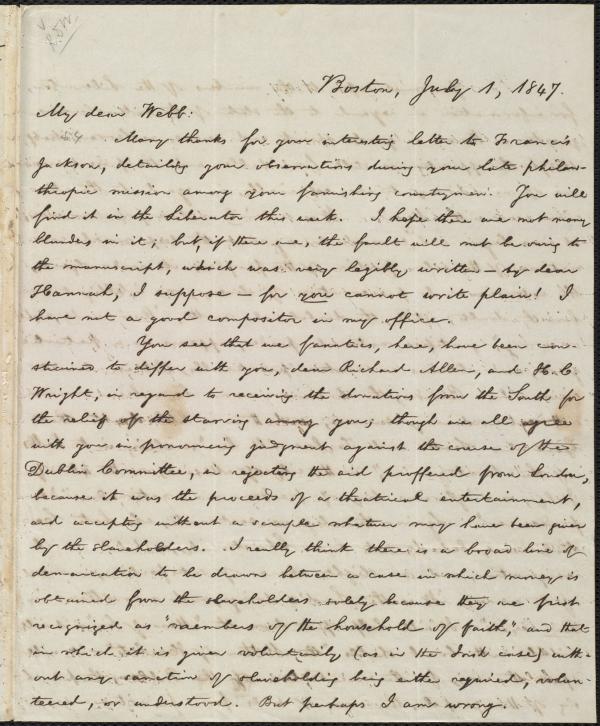 Boston, July 1, 1847.
My dear Webb:
Many thanks for your interesting letter to Francis
Jackson, detailing your observations during your late philan-
thropic mission among your famishing countrymen. You will
find it in the Liberator this week. I hope there are not many
blunders in it; but if there are, the fault will not be owing to
the manuscript, which was very legibly written — by dear
Hannah, I suppose — for you cannot write plain! I
have not a good compositor in my office.
You see that we fanatics, here, have been con-
strained to differ with you, dear Richard Allen, and H. C.
Wright, in regard to receiving the donations from the South for
the relief of the starving among you; though we all agree
with you in pronouncing judgment against the course of the
Dublin Committee, in rejecting the aid proffered from London,
because it was the proceeds of a theatrical entertainment,
and accepting without a scruple whatever may have been given
by the slaveholders. I really think there is a broad line of
demarcation to be drawn between a case in which money is
obtained from the slaveholders solely because they are first
recognized as "members of the household of faith," and that
in which it is given voluntarily (as in the Irish case) with-
out any sanction of slaveholding being either required, volun-
teered, or understood. But perhaps I am wrong.